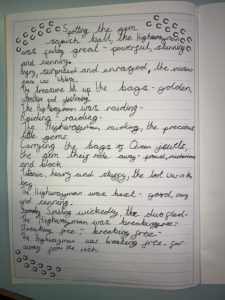 Spotting the gem
squish ball, the Highwayman
was feeling great - powerful, stunning
and cunning.
Angry, surprised and enraged, the victims
face was
The treasure lit up the bags - golden,
and glistening.
The Highwayman was raiding-
Raiding - raiding-
The Highwayman raiding, the precious
little gems.
Carrying the bags to Queen
the gem they rode away - proud, mysterious
and black.
heavy and sluggy, the loot was in the
bag.
The Highwayman was best - good,
and cunning.
Smiling wickedly, the duo fled-
The Highwayman was breaking free-
Breaking free - breaking free-
The Highwayman was breaking free. far
away from the